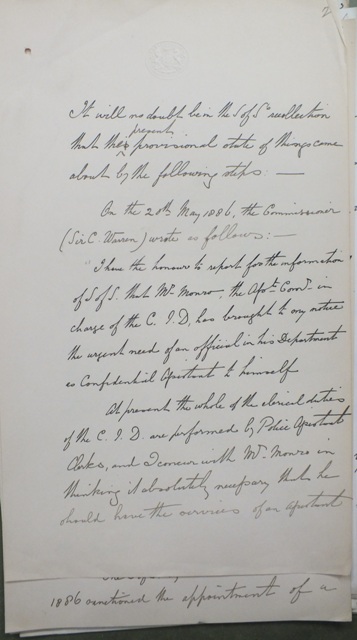 2
It will no doubt be in the S of S's recollection
present
that the provisional state of things came
about by the following steps: —
On the 20th May 1886, the Commissioner
(Sir C. Warren) wrote as follows: —
"I have the honour to report for the information
of S of S. that Mr Monro, the Asst. Commr. in
charge of the C. I. D, has brought to my notice
the urgent need of an official in his Department
as Confidential Assistant to himself
At present the whole of the clerical duties
of the C. I. D. are performed by Police Assistant
Clerks, and I concur with Mr. Monro in
thinking it absolutely necessary that he
should have the services of an Assistant
1886 sanctioned the appointment of a